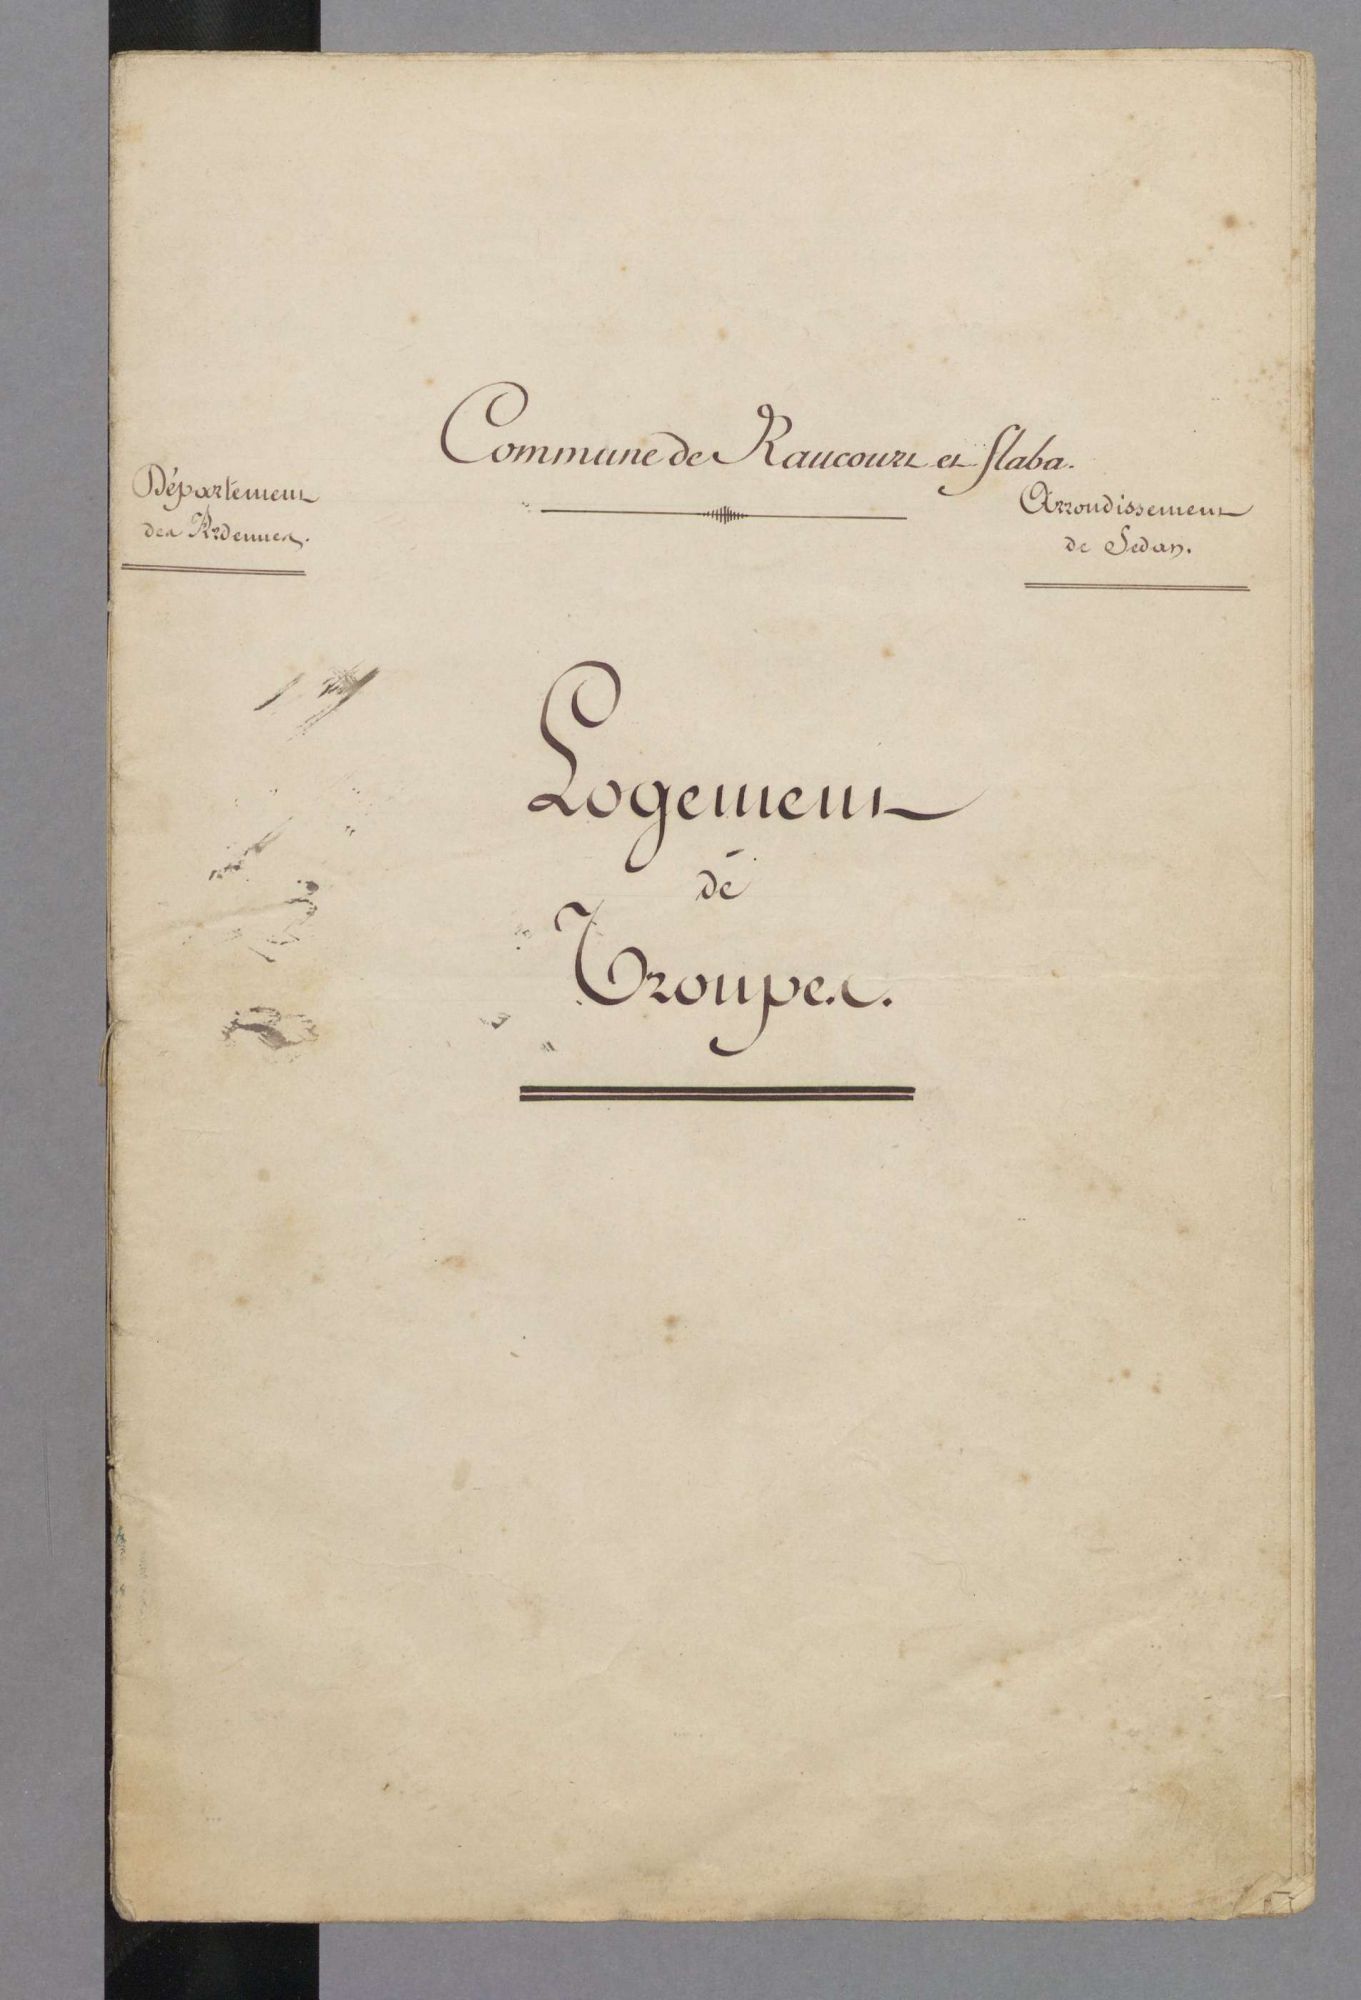 Commune de Raucourt et Flaba.
Département
des Ardennes.
Arrondissement
de Sedan.
Logement
de
Troupes.